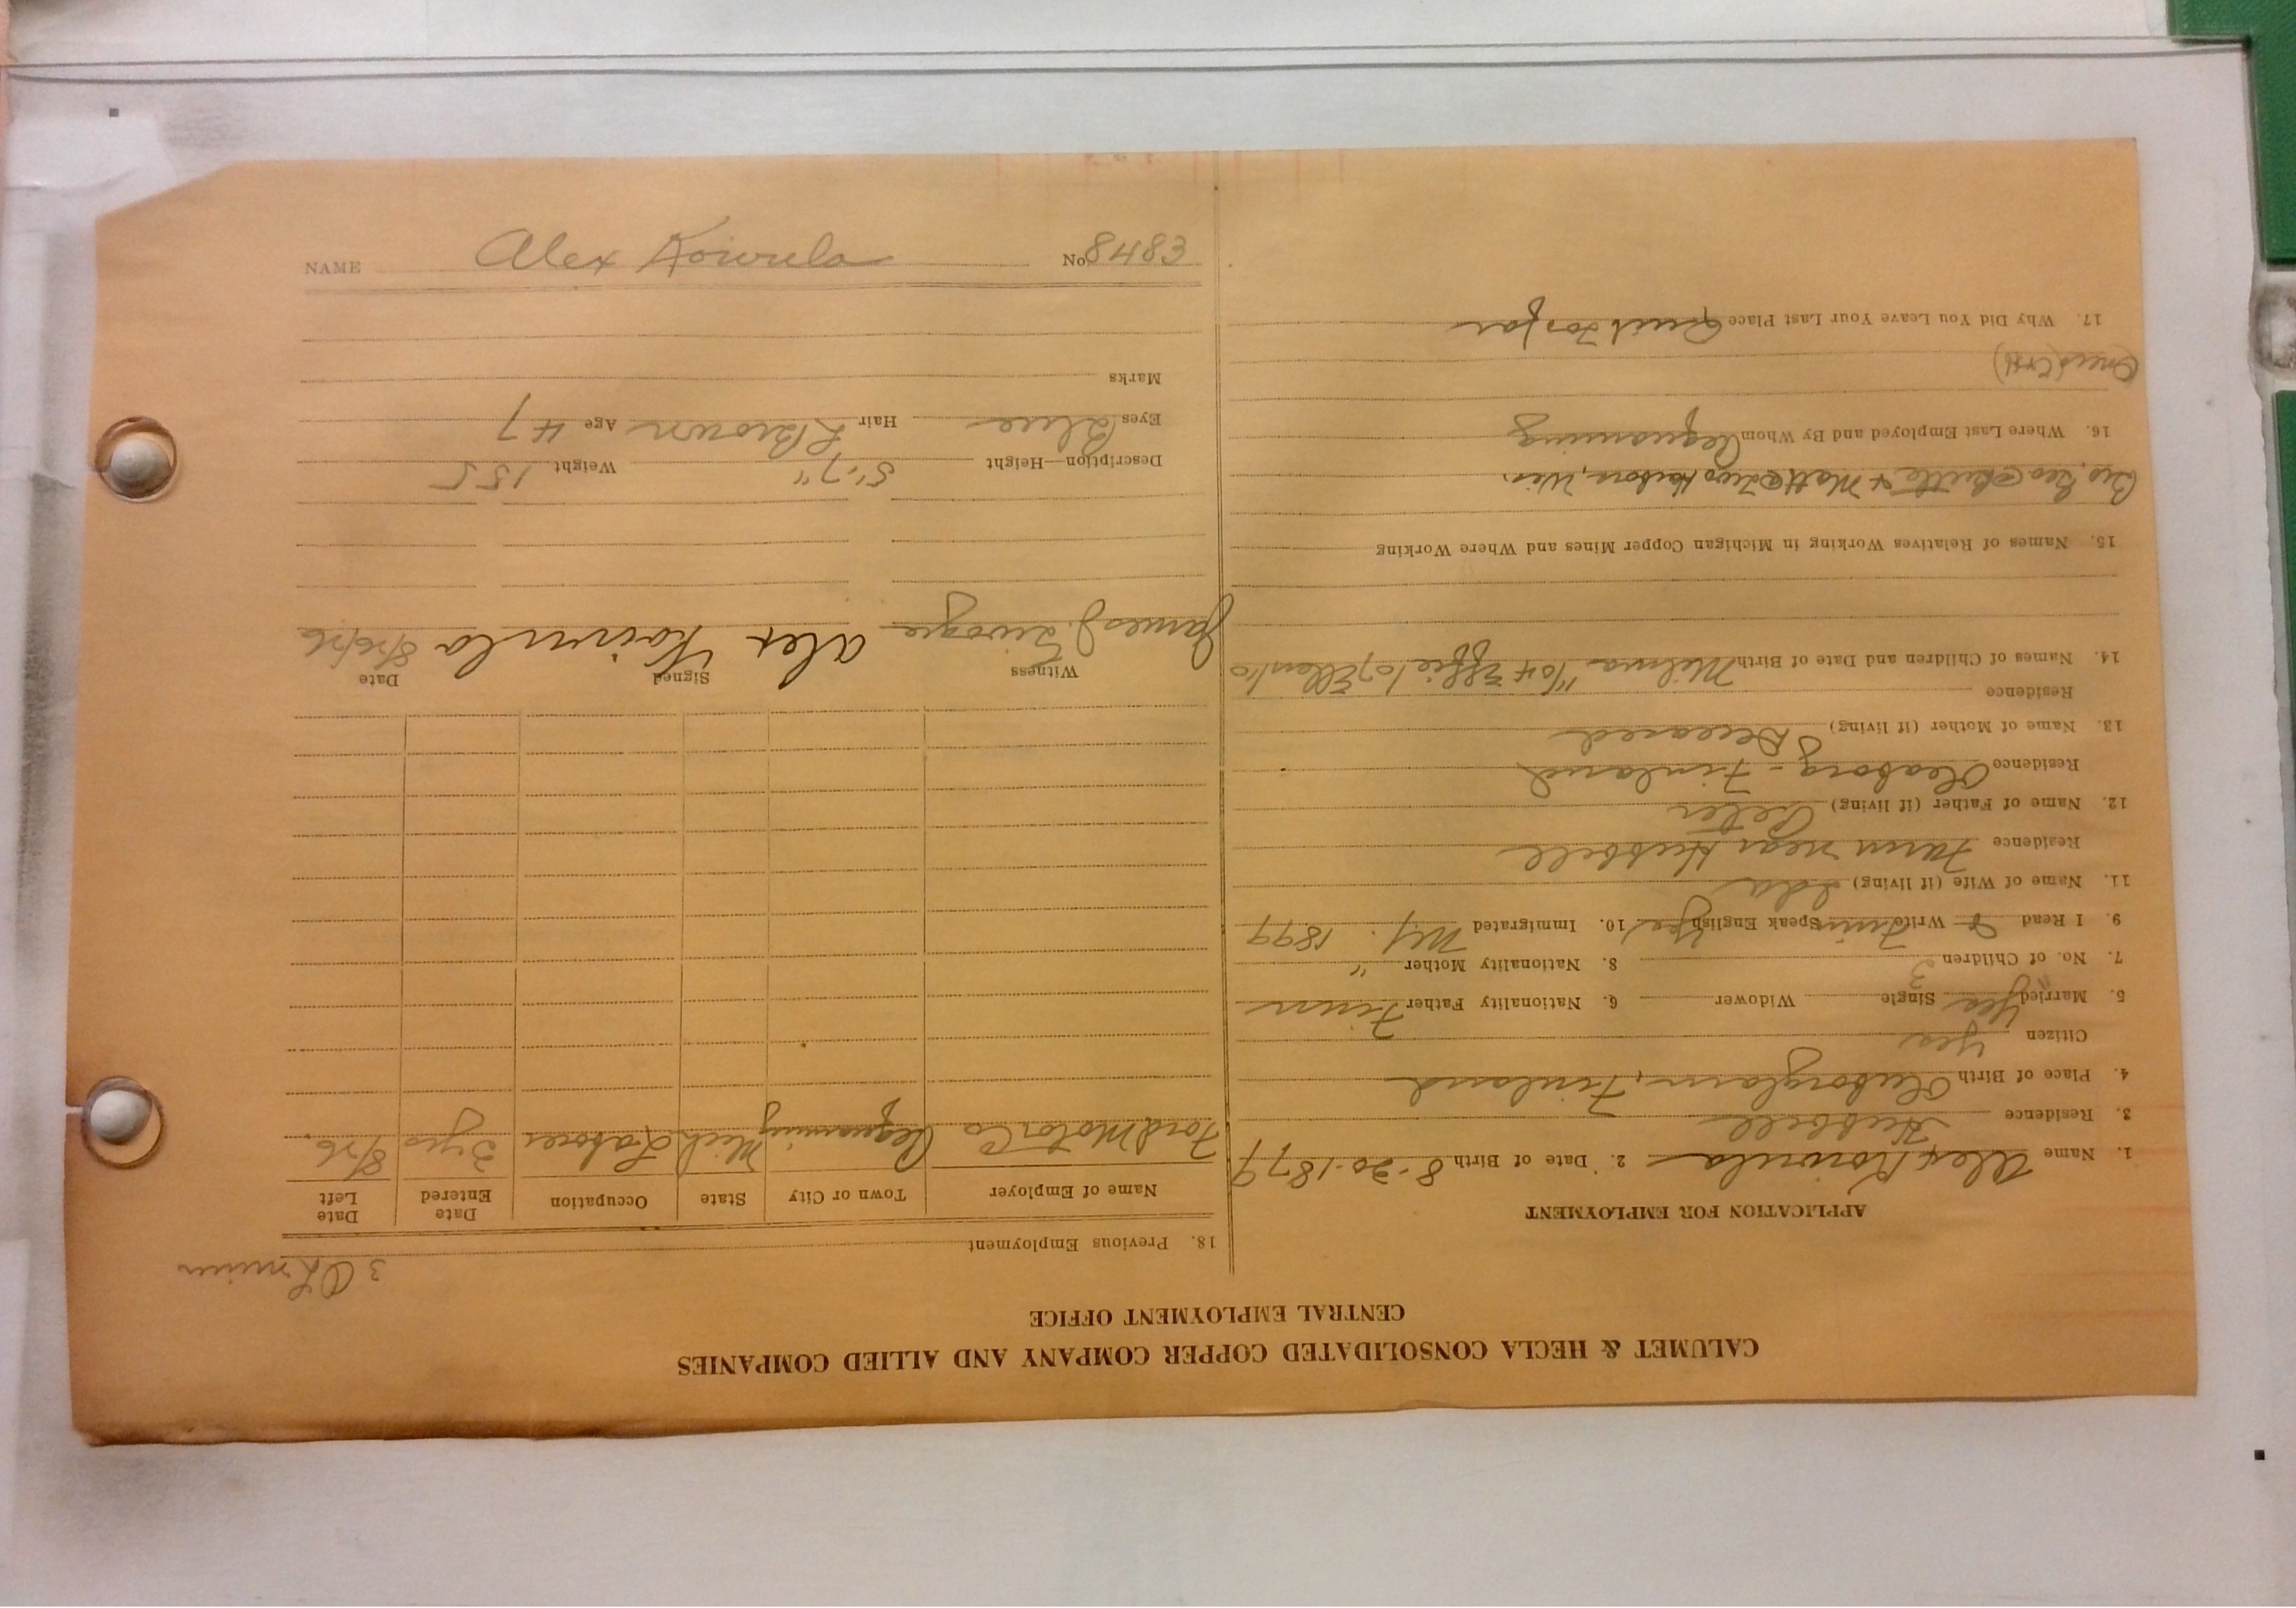 NAME Alex Koivula No 8483
CALUMET & HECLA CONSOLIDATED COPPER COMPANY AND ALLIED COMPANIES
CENTRAL EMPLOYMENT OFFICE
APPLICATION FOR EMPLOYMENT
1. Name Alex Koivula 2. Date of Birth 8-20-1879
3. Residence Hubbell
4. Place of Birth Finland
Citizen Yes
5. Married Yes Single Widower 6. Nationality Father Finn
7. No. of Children 3 8. Nationality Mother "
9. I Read & Write Finn Speak English Yes 10. Immigrated 1899
11. Name of Wife (if living) Ida
Residence Farm near Hubbell
12. Name of Father (if living) Peter
Residence Oleaborg - Finland
13. Name of Mother (if living) Deceased
Residence
14. Names of Children and Date of Birth Milma "/04 Effie/07 Ellen/10
15. Names of Relatives Working in Michigan Copper Mines and Where Working
Bro. Geo @ Butte & Matt @ Two Harbors, Wis.
16. Where Last Employed and By Whom Pequaming
Once (C&H)
17. Why Did You Leave Your Last Place Quit Too far
3 miner
18. Previous Employment
Name of Employer Town or City State Occupation Date Entered Date Left
Ford Motor Co Pequaming Mich Laborer 3 yrs 8/26
Witness Signed Date
James J. Alex Koivula 8/26/26
Description—Height 5'-7" Weight 155
Eyes Blue Hair L Brown Age 47
Marks